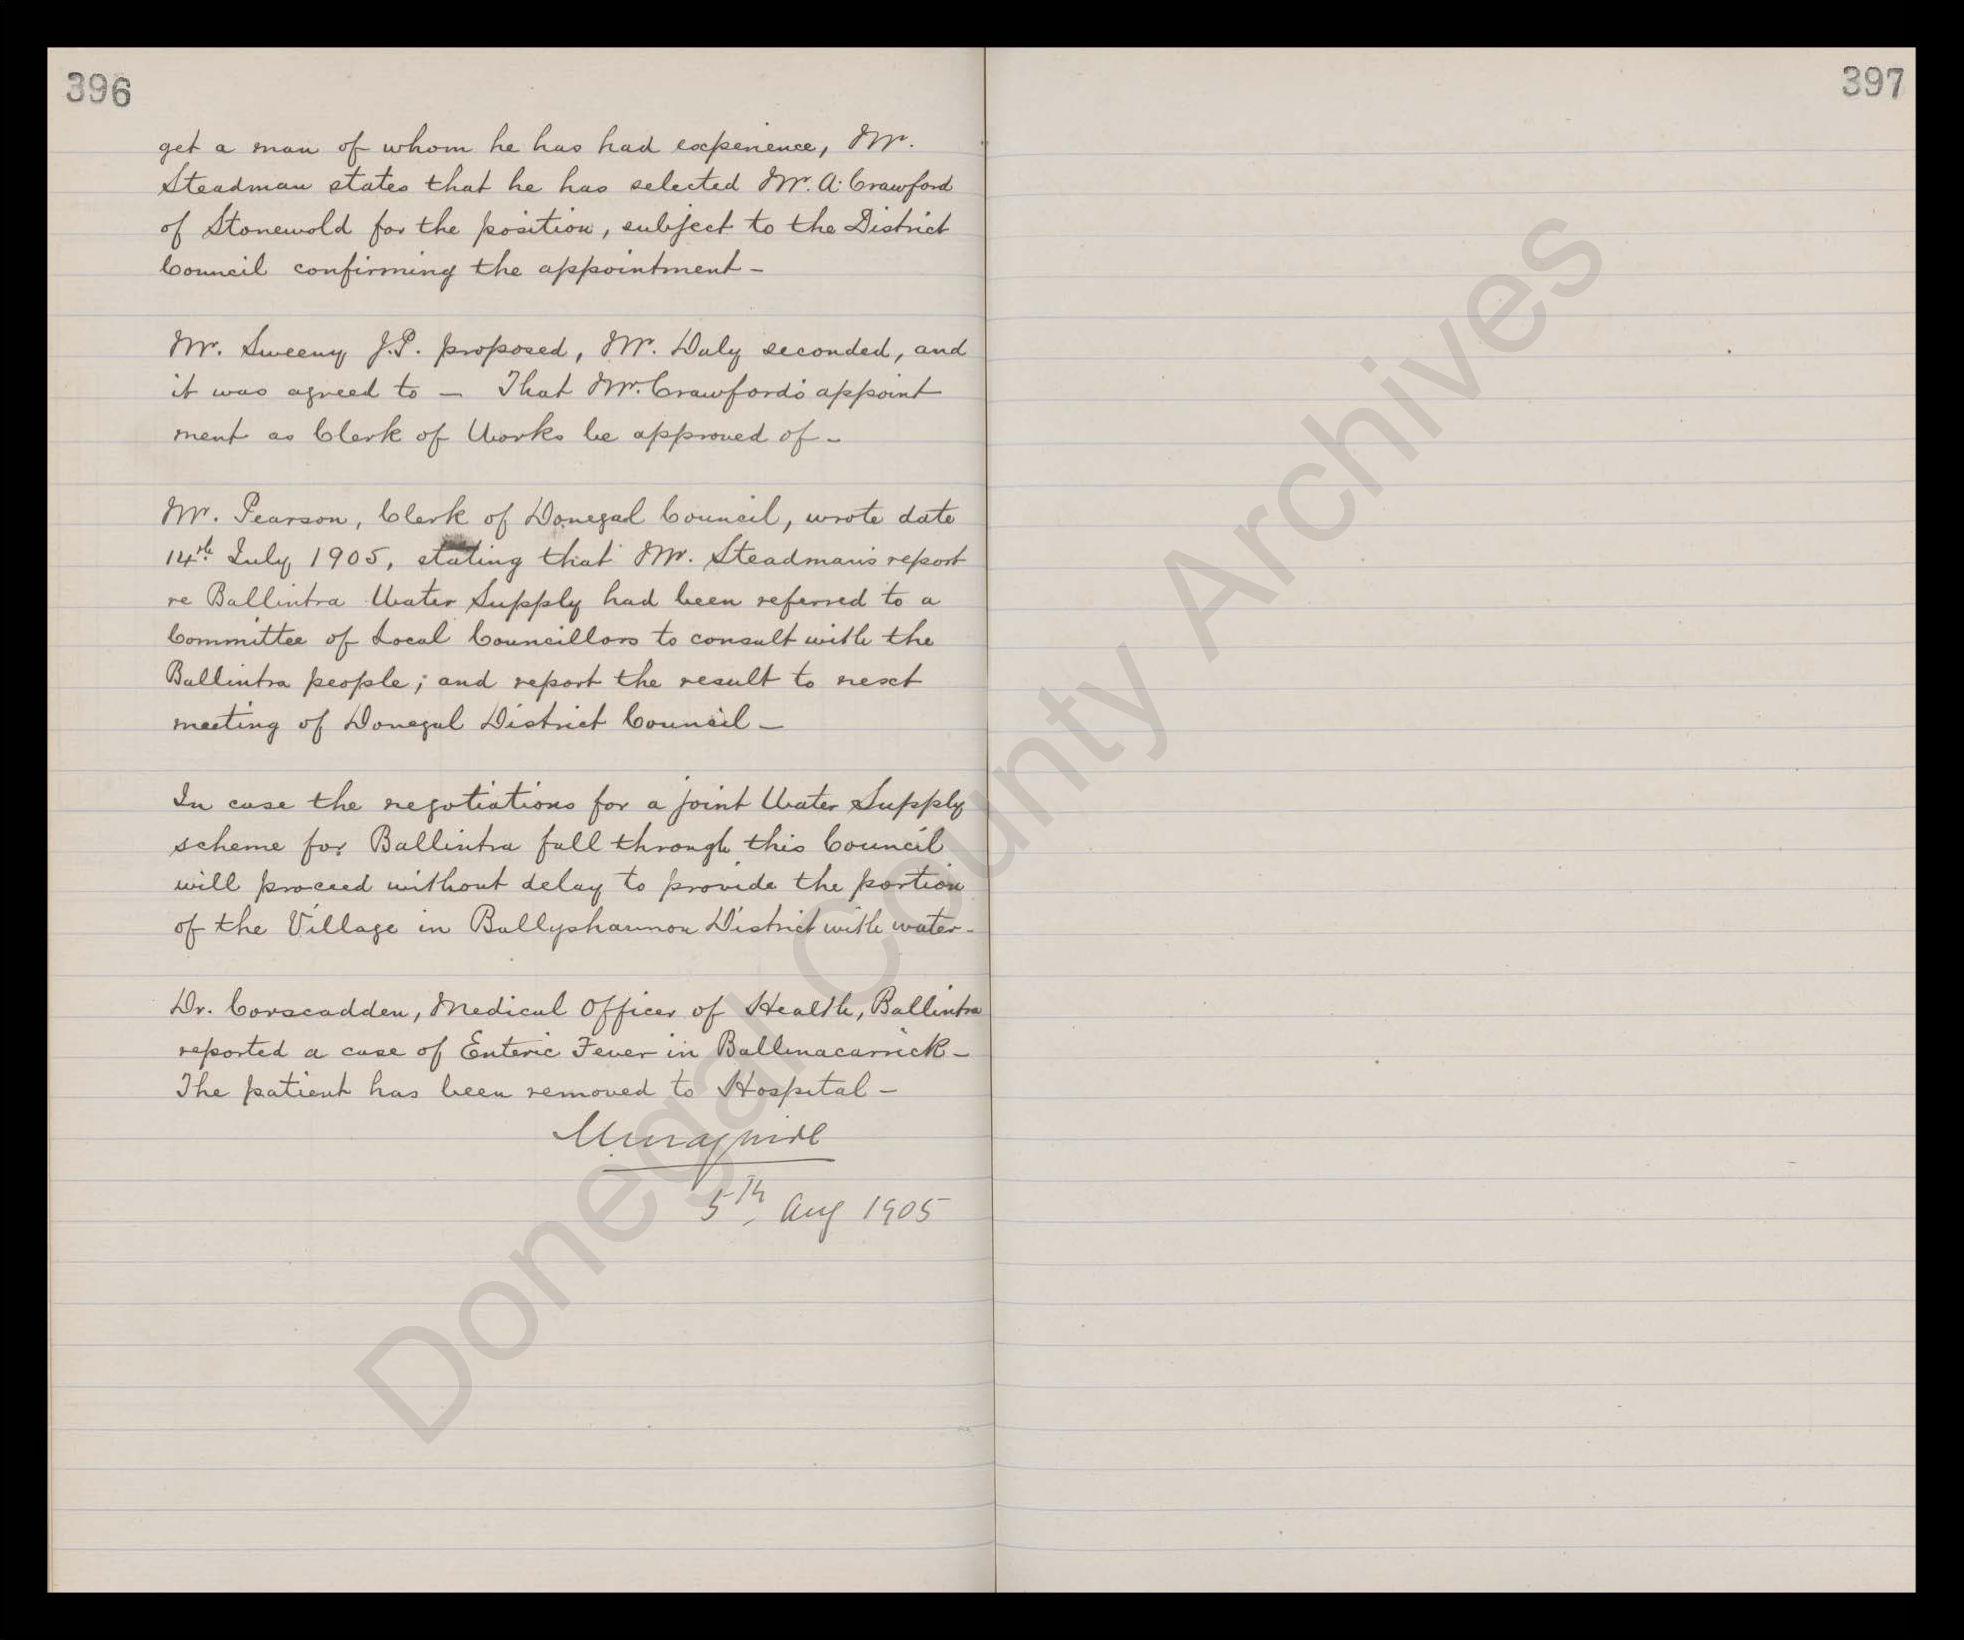 396
get a man of whom he has had experience, Mr.
Steadman states that he has selected Mr. A. Crawford
of Stonewold for the position, subject to the District
Council confirming the appointment -
Mr. Sweeny J.P. proposed, Mr. Daly seconded, and
it was agreed to - That Mr. Crawford's appoint
ment as Clerk of Works be approved of -
Mr. Pearson, Clerk of Donegal Council, wrote date
14th July 1905, stating that Mr. Steadman's report
re Ballintra Water Supply had been referred to a
Committee of Local Councillors to consult with the
Ballintra people; and report the result to next
meeting of Donegal District Council -
In case the negotiations for a joint Water Supply
scheme for Ballintra fall through this Council
will proceed without delay to provide the portion
of the Village in Ballyshannon District with water -
Dr. Corscadden, Medical Officer of Health, Ballintra
reported a case of Enteric Fever in Ballinacarrick -
The patient has been removed to Hospital -
5th Aug 1905
397
Donegal County Archives